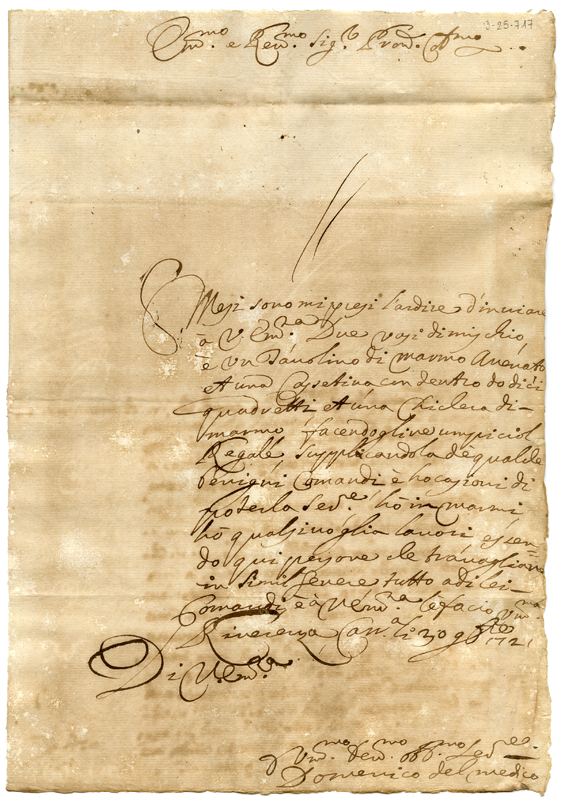 J-25-717
Em.mo e Rev.mo Sig.r Pron. Col.mo
Mesi sono mi presi l'ardire d'inviare
à V Em.za Due vasi di mischio
e vn Tavolino di marmo
et una Casetina con dentro dodici
quadretti et una Chichera di
marmo facendogline un piciol
Regalo Supplicandola de qualche
benigni Comandi è hocasioni di
poterla Ser.e hò in marmi
hò qualsivòglia lavori essen=
do qui persone che travagliono
in simil Genere tutto a di lei
Comandi è à V Em.a le facio Um.ma
Riverenza Car.a li 30 9bre 1721
Di V. Em.a
Um.mo Dev.mo Obb.mo Ser.re
Domenico del medico